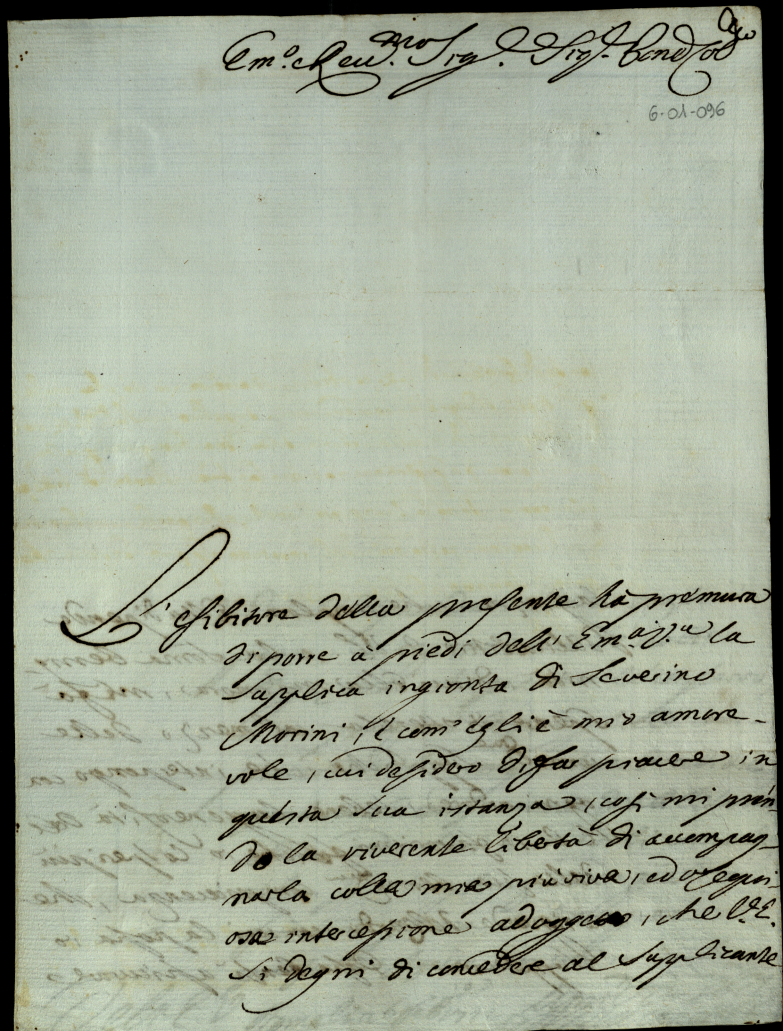 Em.º e Rev.mo Sig.r Sig.r Pnē Col.mo
6-01-096
L'esibitore della presente hà premura
di porre à piedi dell' Em.a V.a la
Supplica ingionta di Severino
Morini, e com' egli è mio amore-
vole, cui desidero di far piacere in
questa sua istanza, così mi pren-
do la riverente libertà di accompag-
narla colla mia più viva, ed ossequi
osa intercessione ad oggetto, che V.E.
si degni di concedere al Supplicante